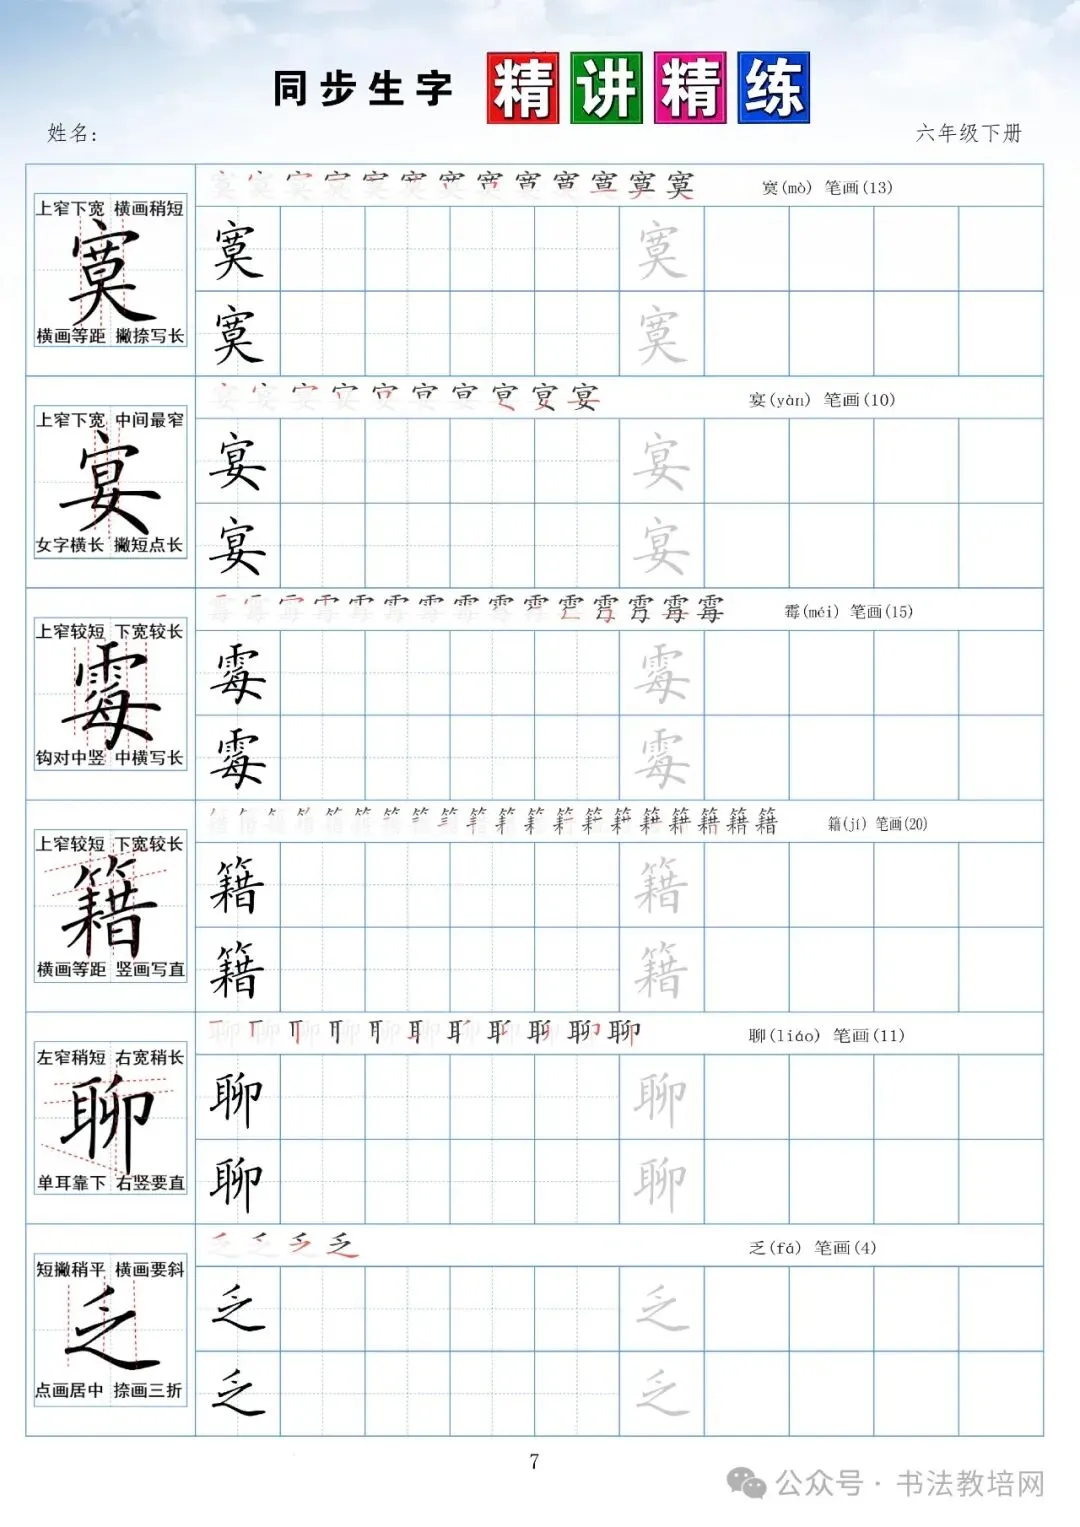 同步生字 精讲精练
姓名: 六年级下册
寞(mò) 笔画(13)
上窄下宽 横画稍短
寞
横画等距 撇捺写长
寞 寞
寞 寞
宴(yàn) 笔画(10)
上窄下宽 中间最窄
宴
女字横长 撇短点长
宴 宴
宴 宴
霉(méi) 笔画(15)
上窄较短 下宽较长
霉
钩对中竖 中横写长
霉 霉
霉 霉
籍(jí) 笔画(20)
上窄较短 下宽较长
籍
横画等距 竖画写直
籍 籍
籍 籍
聊(liáo) 笔画(11)
左窄稍短 右宽稍长
聊
单耳靠下 右竖要直
聊 聊
聊 聊
乏(fá) 笔画(4)
短撇稍平 横画要斜
乏
点画居中 捺画三折
乏 乏
乏 乏
7
公众号·书法教培网